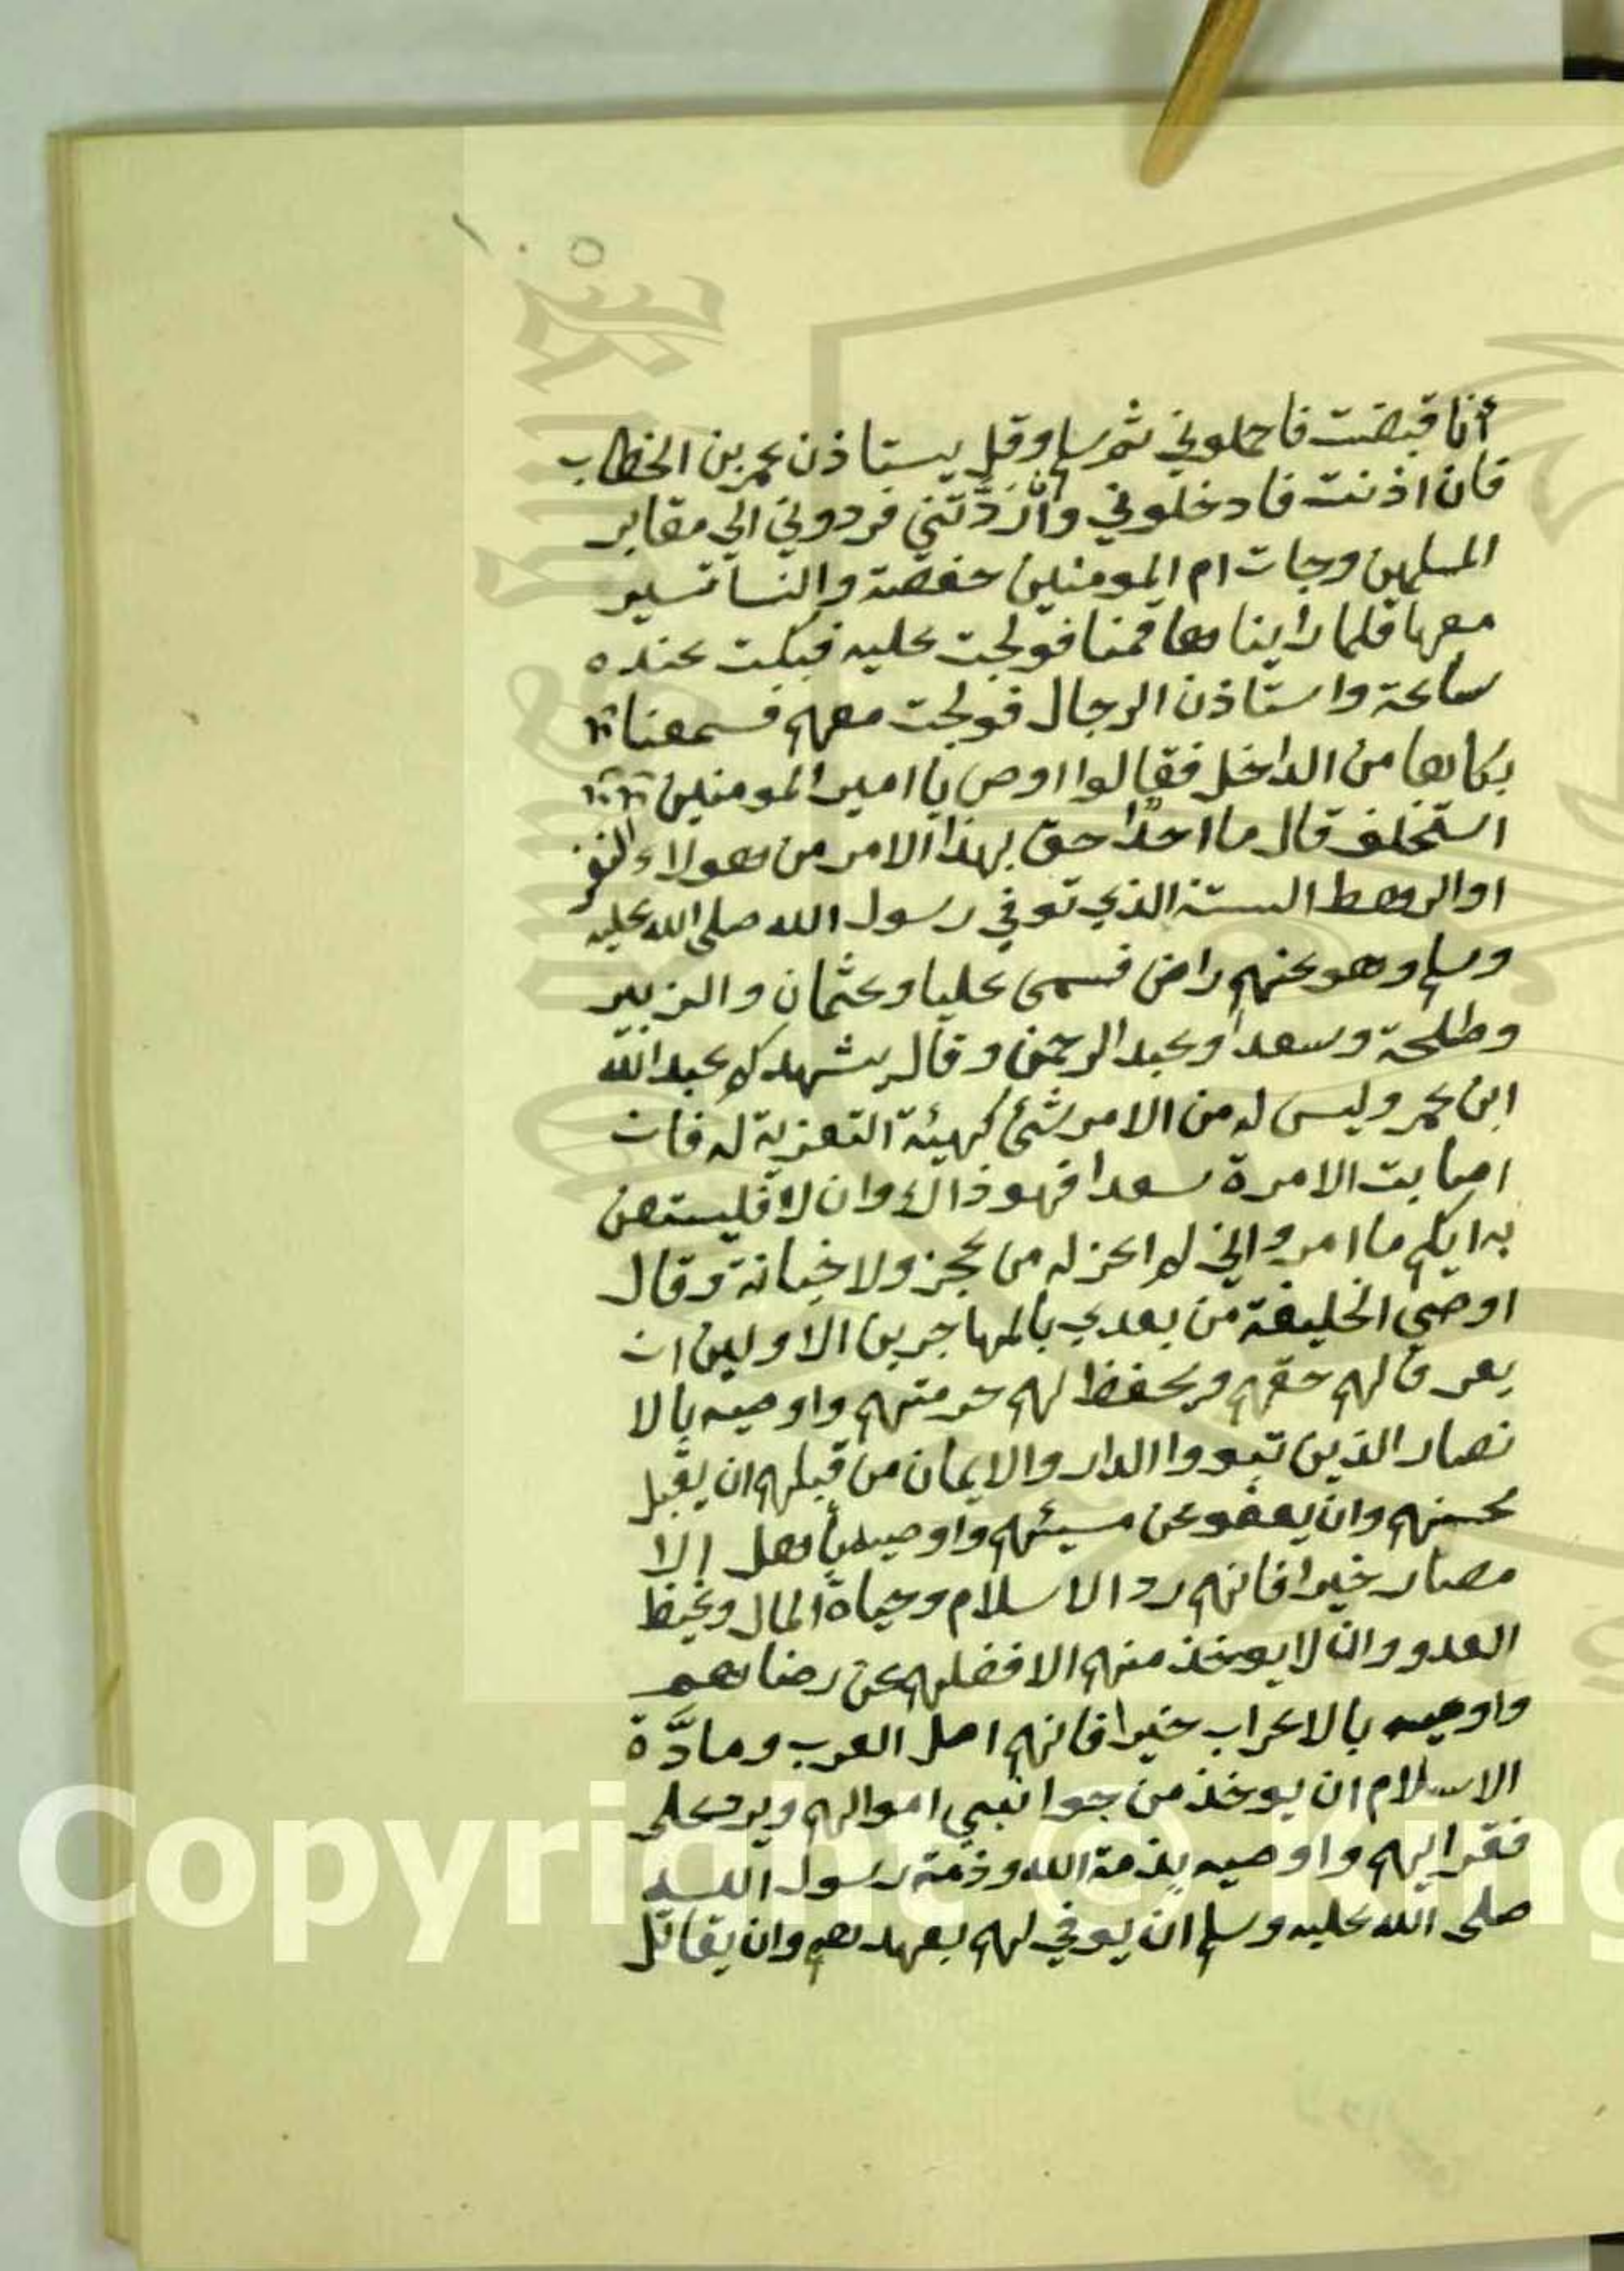 ١٠٥
أنا قبضت فاحملوني ثم سلم وقل يستاذن عمر بن الخطاب
فان اذنت فادخلوني وان رَدَّتني فردوني الي مقابر
المسلمين وجات ام المومنين حفصة والنسا تسير
معها فلما رايناها قمنا فولجت عليه فبكت عنده
ساعة واستاذن الرجال فولجت معهم فسمعنا
بكاها من الداخل فقالوا اوص يا امير المومنين
استخلف قال ما احدا حق بهذا الامر من هولاء النفر
او الرهط الستة الذي توفي رسول الله صلى الله عليه
وسلم وهو عنهم راض فسمى عليا وعثمان والزبير
وطلحة وسعدا وعبد الرحمن وقال يشهدكم عبد الله
ابن عمر وليس له من الامر شئ كهيئة التعزية له فان
اصابت الامرة سعدا فهو ذاك وان لا فليستعن
به ايكم ما امر واني لم اعزله من عجز ولا خيانة وقال
اوصي الخليفة من بعدي بالمهاجرين الاولين ان
يعرف لهم حقهم ويحفظ لهم حرمتهم واوصيه بالا
نصار الذين تبووا الدار والايمان من قبلهم ان يقبل
محسنهم وان يعفو عن مسيئهم واوصيه بأهل الا
مصار خيرا فانهم رد الاسلام وحياة المال وغيظ
العدو وان لا يوخذ منهم الا فضلهم عن رضاهم
واوصيه بالاعراب خيرا فانهم اصل العرب ومادَّة
الاسلام ان يوخذ من جوانبي اموالهم ويرد على
فقرايهم واوصيه بذمة الله وذمة رسول الله
صلى الله عليه وسلم ان يوفي لهم بعهدهم وان يقاتل
Copyright © King